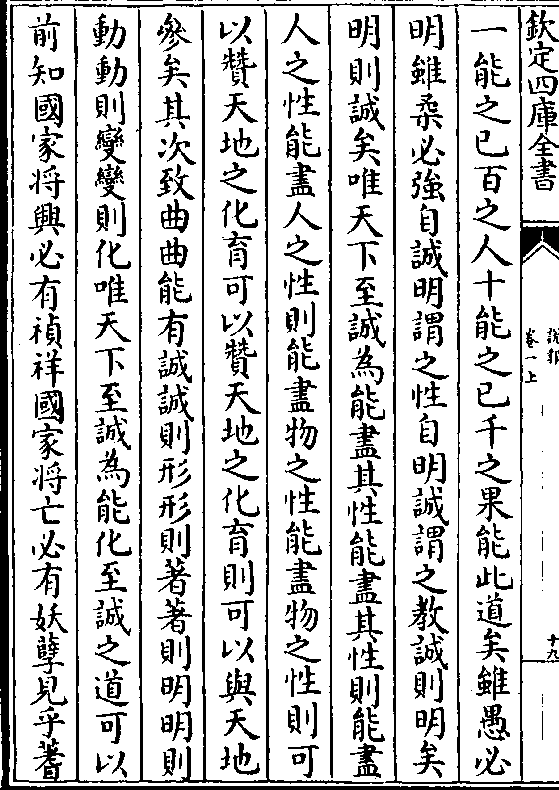 欽定四庫全書
說郛
卷一上
十九
一能之已百之人十能之已千之果能此道矣雖愚必
明雖柔必強自誠明謂之性自明誠謂之教誠則明矣
明則誠矣唯天下至誠為能盡其性能盡其性則能盡
人之性能盡人之性則能盡物之性能盡物之性則可
以贊天地之化育可以贊天地之化育則可以與天地
參矣其次致曲曲能有誠誠則形形則著著則明明則
動動則變變則化唯天下至誠為能化至誠之道可以
前知國家将興必有禎祥國家将亡必有妖孽見乎蓍